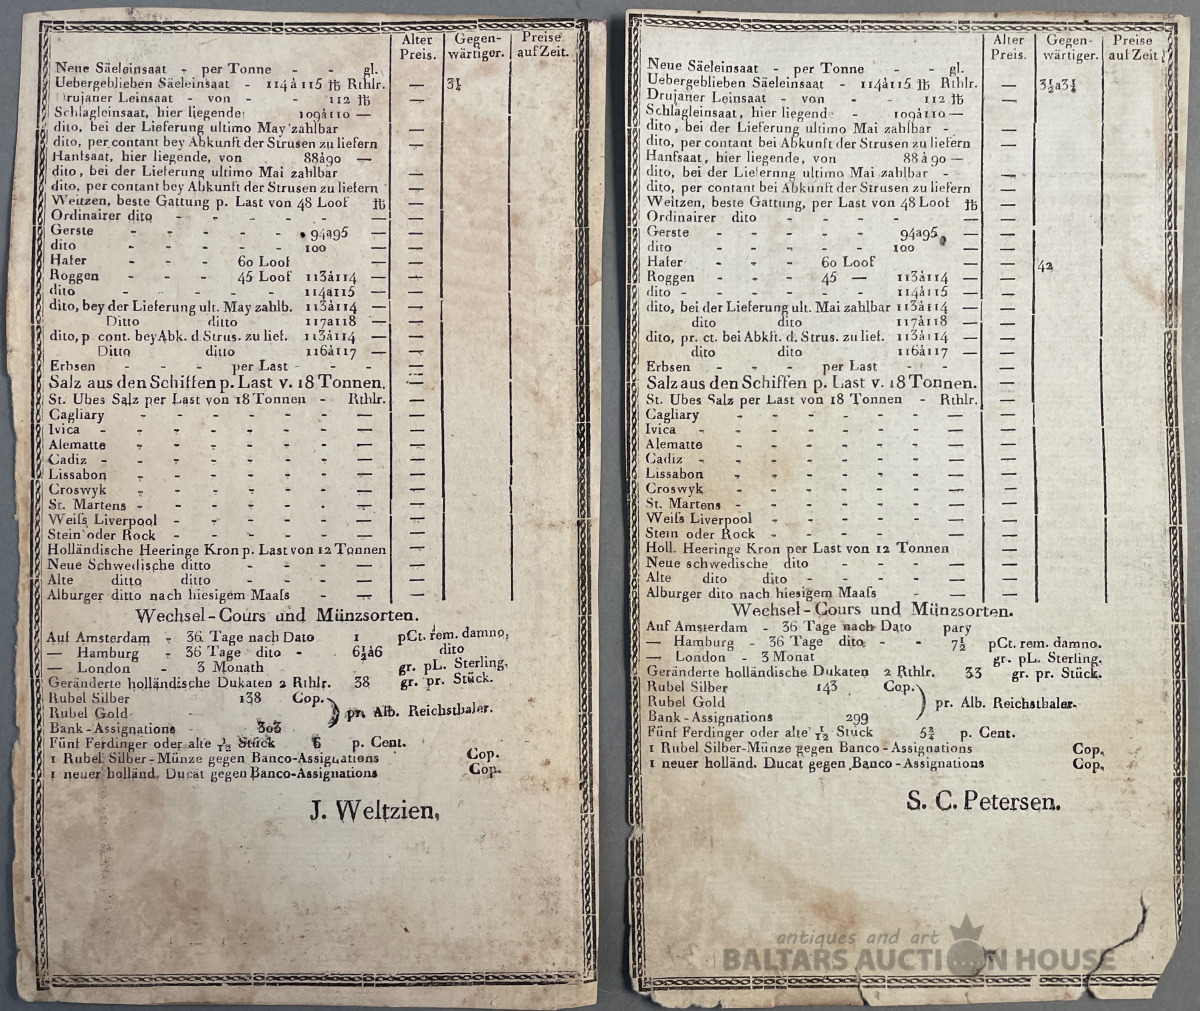 Alter Preis. Gegen- wärtiger. Preise auf Zeit.
Neue Säeleinsaat - per Tonne - - gl.
Uebergeblieben Säeleinsaat - 114 à 115 ℔ Rthlr. — 3¼
Drujaner Leinsaat - von - 112 ℔ —
Schlagleinsaat, hier liegende 109à110 — —
dito, bei der Lieferung ultimo May zahlbar —
dito, per contant bey Abkunft der Strusen zu liefern —
Hanfsaat, hier liegende, von 88à90 — —
dito, bei der Lieferung ultimo Mai zahlbar —
dito, per contant bey Abkunft der Strusen zu liefern —
Weitzen, beste Gattung p. Last von 48 Loof ℔ —
Ordinairer dito - - - - - —
Gerste - - - - - 94a95 — —
dito - - - - - 100 —
Hafer - - - 60 Loof — —
Roggen - - - 45 Loof 113à114 — —
dito - - - - - 114a115 — —
dito, bey der Lieferung ult. May zahlb. 113à114 — —
Ditto ditto 117a118 — —
dito, p cont. bey Abk. d Strus. zu lief. 113à114 — —
Ditto ditto 116à117 — —
Erbsen - - - per Last - - - —
Salz aus den Schiffen p. Last v. 18 Tonnen. —
St. Ubes Salz per Last von 18 Tonnen - Rthlr. —
Cagliary - - - - - - — —
Ivica - - - - - - - — —
Alematte - - - - - - — —
Cadiz - - - - - - - — —
Lissabon - - - - - - — —
Croswyk - - - - - - — —
St. Martens - - - - - - — —
Weiſs Liverpool - - - - - — —
Stein oder Rock - - - - - — —
Holländische Heeringe Kron p. Last von 12 Tonnen —
Neue Schwedische ditto - - - — —
Alte ditto ditto - - - - — —
Alburger ditto nach hiesigem Maaſs - - — —
Wechsel-Cours und Münzsorten.
Auf Amsterdam - 36 Tage nach Dato 1 pCt. rem. damno,
— Hamburg - 36 Tage dito - 6½à6 dito
— London - 3 Monath gr. pL. Sterling,
Geränderte holländische Dukaten 2 Rthlr. 38 gr. pr. Stück.
Rubel Silber 138 Cop.
Rubel Gold pr. Alb. Reichsthaler.
Bank-Assignations 303
Fünf Ferdinger oder alte 1/12 Stück 6 p. Cent.
1 Rubel Silber-Münze gegen Banco-Assignations Cop.
1 neuer holländ. Ducat gegen Banco-Assignations Cop.
J. Weltzien,
Alter Preis. Gegen- wärtiger. Preise auf Zeit.
Neue Säeleinsaat - per Tonne - - gl.
Uebergeblieben Säeleinsaat - 114à115 ℔ Rthlr. — 3½a3¼
Drujaner Leinsaat - von - 112 ℔ —
Schlagleinsaat, hier liegende - 109à110 — —
dito, bei der Lieferung ultimo Mai zahlbar - —
dito, per contant bei Abkunft der Strusen zu liefern —
Hanfsaat, hier liegende, von 88à90 — —
dito, bei der Lieferung ultimo Mai zahlbar - —
dito, per contant bei Abkunft der Strusen zu liefern —
Weitzen, beste Gattung, per Last von 48 Loof ℔ —
Ordinairer dito - - - - - —
Gerste - - - - - 94a95 —
dito - - - - - 100 —
Hafer - - - 60 Loof — — 42
Roggen - - - 45 — 113à114 — —
dito - - - - - 114à115 — —
dito, bei der Lieferung ult. Mai zahlbar 113à114 — —
dito dito 117à118 — —
dito, pr. ct. bei Abkft. d. Strus. zu lief. 113à114 — —
dito dito 116à117 — —
Erbsen - - - per Last - - - —
Salz aus den Schiffen p. Last v. 18 Tonnen. —
St. Ubes Salz per Last von 18 Tonnen - Rthlr. —
Cagliary - - - - - - — —
Ivica - - - - - - - — —
Alematte - - - - - - — —
Cadiz - - - - - - - — —
Lissabon - - - - - - — —
Croswyk - - - - - - — —
St. Martens - - - - - - — —
Weiſs Liverpool - - - - - — —
Stein oder Rock - - - - - — —
Holl. Heeringe Kron per Last von 12 Tonnen —
Neue schwedische dito - - - — —
Alte dito dito - - - - — —
Alburger dito nach hiesigem Maaſs - - — —
Wechsel-Cours und Münzsorten.
Auf Amsterdam - 36 Tage nach Dato pary
— Hamburg - 36 Tage dito - - 7½ pCt. rem. damno.
— London - 3 Monat gr. pL. Sterling.
Geränderte holländische Dukaten 2 Rthlr. 33 gr. pr. Stück.
Rubel Silber 143 Cop.
Rubel Gold pr. Alb. Reichsthaler.
Bank-Assignations 299
Fünf Ferdinger oder alte 1/12 Stück 5¾ p. Cent.
1 Rubel Silber-Münze gegen Banco-Assignations Cop.
1 neuer holländ. Ducat gegen Banco-Assignations Cop.
S. C. Petersen.
antiques and art
BALTARS AUCTION HOUSE